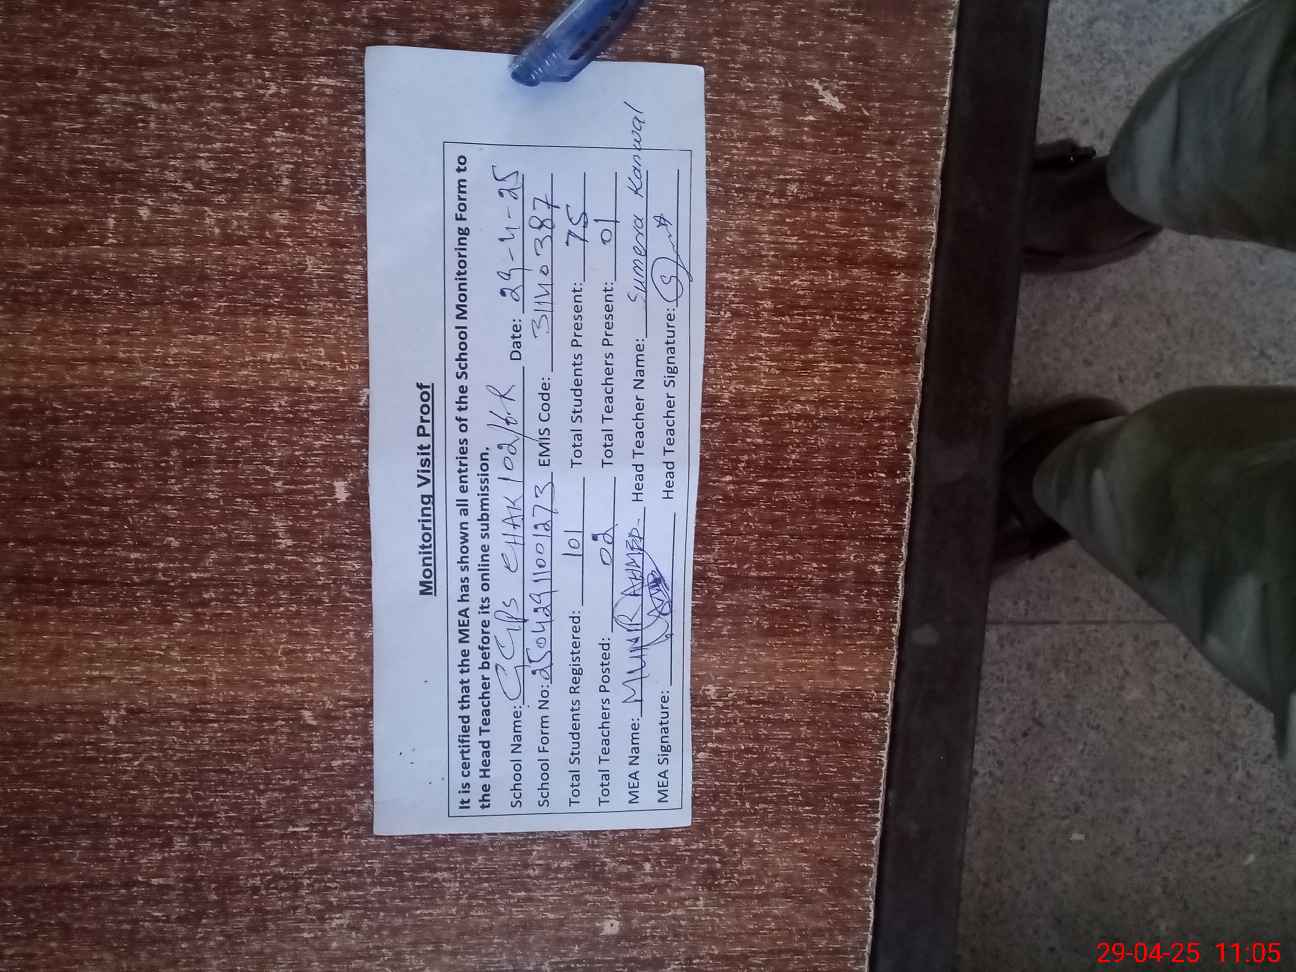 Monitoring Visit Proof
It is certified that the MEA has shown all entries of the School Monitoring Form to
the Head Teacher before its online submission.
School Name: GGPS CHAK 102/6R Date: 29-4-25
School Form No: 25042911001273 EMIS Code: 31140387
Total Students Registered: 101 Total Students Present: 75
Total Teachers Posted: 02 Total Teachers Present: 01
MEA Name: MUNIR AHMED Head Teacher Name: Sumera Kanwal
MEA Signature: Head Teacher Signature:
29-04-25 11:05